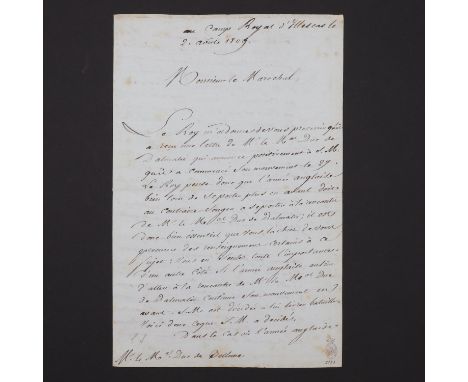 au Camp Royal d'Illescas le
2. août 1809.
Monsieur le Marechal,
Le Roy m'ordonne de vous prevenir qu'il
a reçu une lettre de Mr le Mal Duc de
Dalmatie qui annonce positivement à S. M.
qu'il a commencé son mouvement le 27.
Le Roy pense donc que l'armée anglaise
bien loin de se porter plus en avant doit
au contraire songer a se porter à la rencontre
de Mr le Mal Duc de Dalmatie; il est
donc bien essentiel que vous tachiez de vous
procurer des renseignemens certains à ce
sujet: Vous en sentez toute l'importance
D'un autre côté si l'armée anglaise au lieu
d'aller à la rencontre de Mr le Mal Duc
de Dalmatie continue son mouvement en
avant, S. M. est decidée à lui livrer bataille.
Voici donc ce que S. M. a decidé,
Dans le cas où l'armée anglaise
Mr le Mal Duc de Bellune